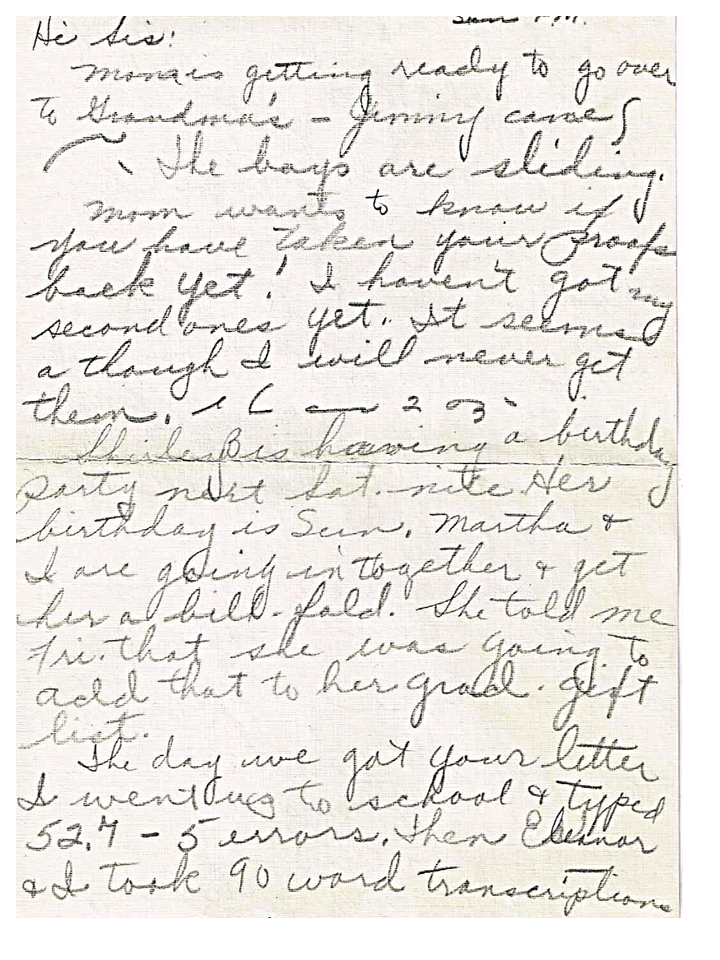 Sun P.M.
Hi Sis:
Mona is getting ready to go over
to Grandma's - Jimmy came
The boys are sliding.
Mom wants to know if
you have taken your proofs
back yet! I haven't got my
second ones yet. It seems
a though I will never get
them.
Shirley B is having a birthday
party next Sat. nite. Her
birthday is Sun. Martha &
I are going in together & get
her a bill-fold. She told me
Fri. that she was going to
add that to her grad. gift
list.
The day we got your letter
I went to school & typed
52.7 - 5 errors. Then Eleanor
& I took 90 word transcriptions